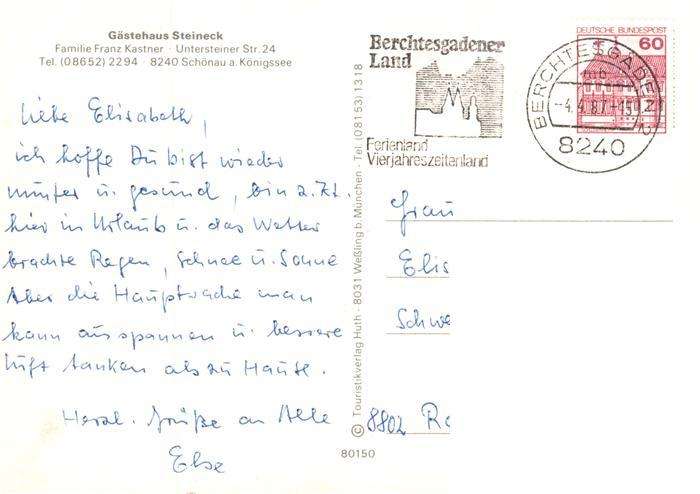 Gästehaus Steineck
Familie Franz Kastner · Untersteiner Str. 24
Tel. (08652) 2294 · 8240 Schönau a. Königssee
Liebe Elisabeth,
ich hoffe Du bist wieder
munter u. gesund, bin z. Zt.
hier in Urlaub u. das Wetter
brachte Regen, Schnee u. Sonne
Aber die Hauptsache man
kann ausspannen u. bessere
Luft tanken als zu Hause.
Herzl. Grüße an Alle
Else
© Touristikverlag Huth · 8031 Weßling b. München · Tel. (081 53) 1318
80150
Berchtesgadener
Land
Ferienland
Vierjahreszeitenland
DEUTSCHE BUNDESPOST
60
BERCHTESGADEN 2
-4.4.87.-15
8240
Frau
Elis
Schwe
8802 Ro